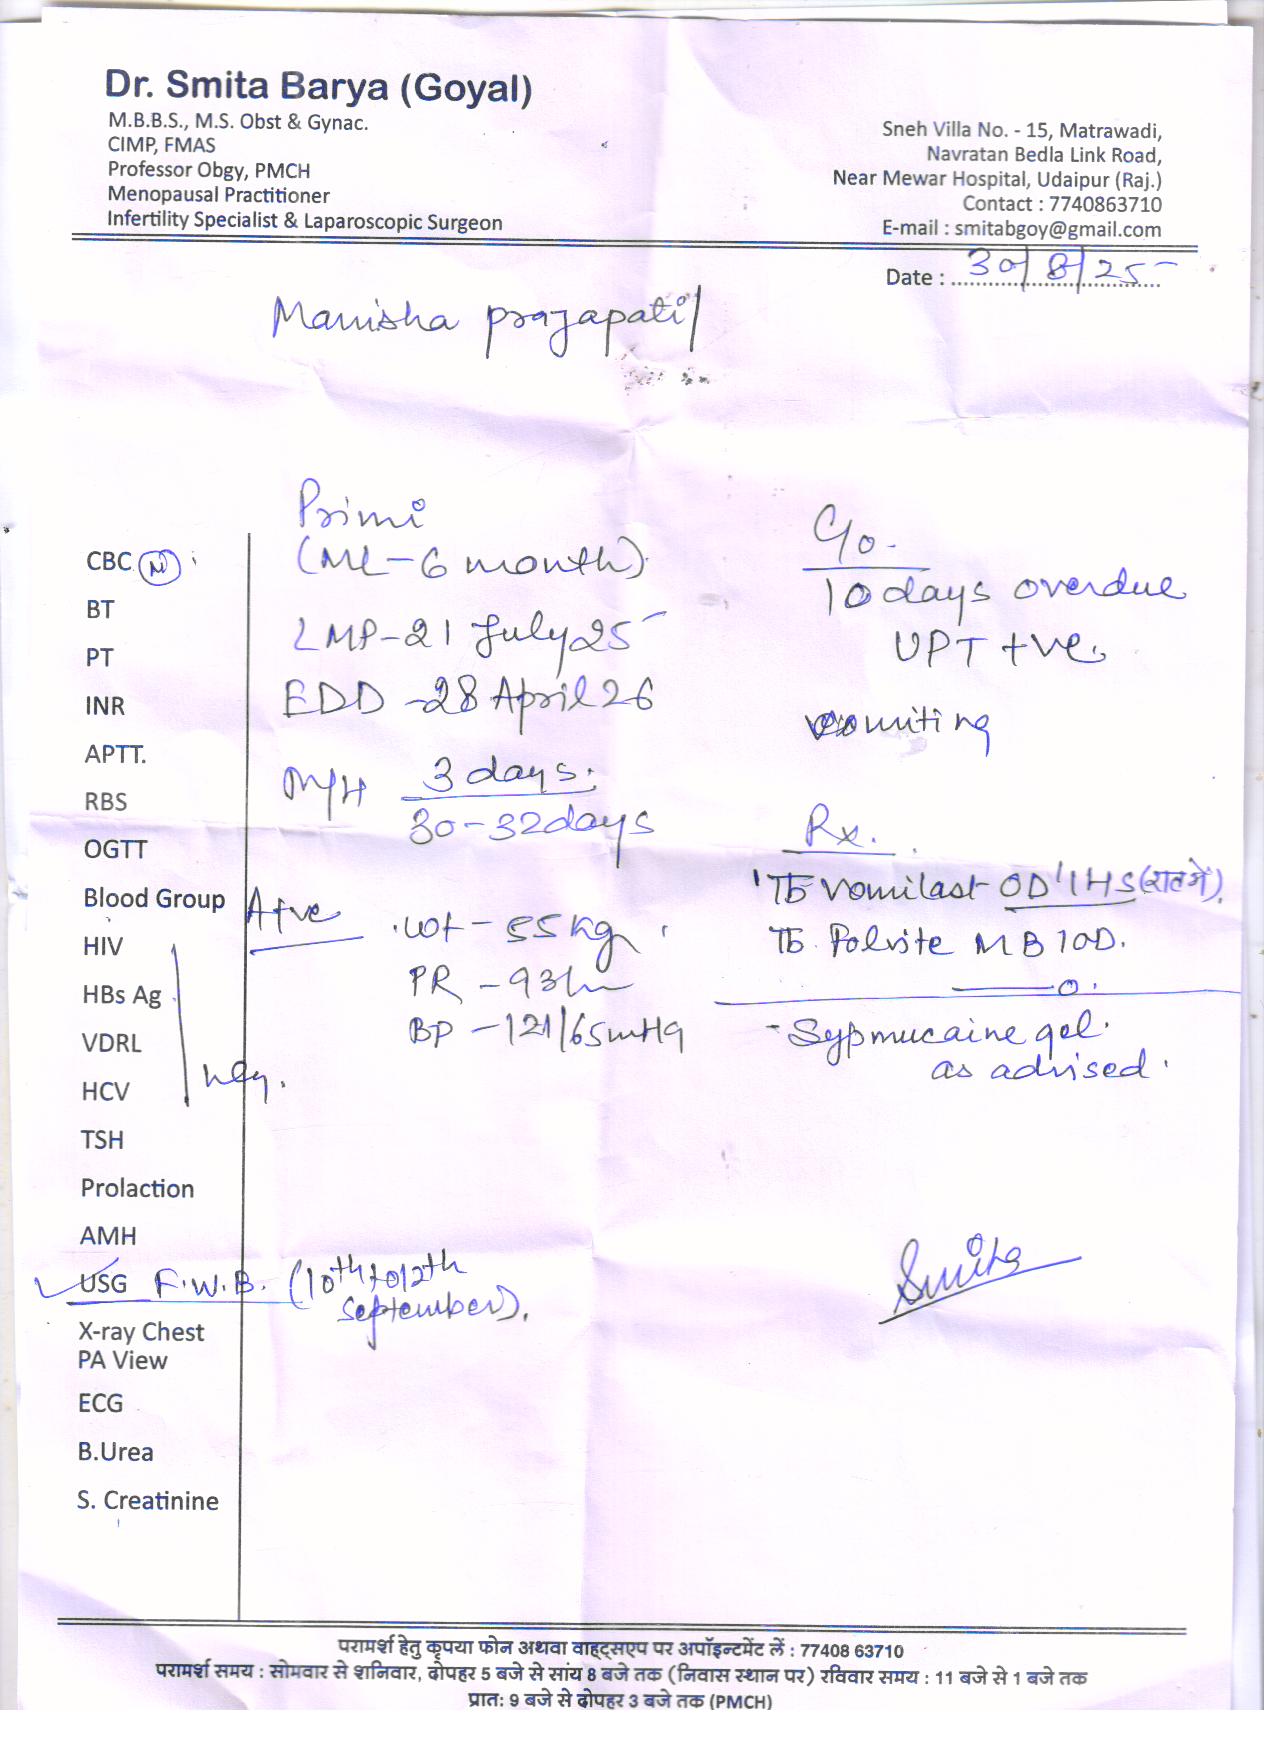 Dr. Smita Barya (Goyal)
M.B.B.S., M.S. Obst & Gynac.
CIMP, FMAS
Professor Obgy, PMCH
Menopausal Practitioner
Infertility Specialist & Laparoscopic Surgeon
Sneh Villa No. - 15, Matrawadi,
Navratan Bedla Link Road,
Near Mewar Hospital, Udaipur (Raj.)
Contact : 7740863710
E-mail : smitabgoy@gmail.com
Date : 30/8/25
Manisha prajapati
Primi
(ML-6 month)
LMP-21 July 25
EDD -28 April 26
M/H 3 days.
30-32days
wt - 55 kg
PR - 93/m
BP - 121/65mmHg
C/o.
10 days overdue
UPT +ve.
vomiting
Rx.
Tb Vomilast OD 1HS (रात में).
Tb. Folvite MB 1OD.
- Syp mucaine gel.
as advised.
CBC (N)
BT
PT
INR
APTT.
RBS
OGTT
Blood Group A+ve
HIV
HBs Ag
VDRL
HCV
Neg.
TSH
Prolaction
AMH
USG F.W.B. (10th to 12th
September).
X-ray Chest
PA View
ECG
B.Urea
S. Creatinine
Smita
परामर्श हेतु कृपया फोन अथवा वाहट्सएप पर अपॉइन्टमेंट लें : 77408 63710
परामर्श समय : सोमवार से शनिवार, दोपहर 5 बजे से सांय 8 बजे तक (निवास स्थान पर) रविवार समय : 11 बजे से 1 बजे तक
प्रात: 9 बजे से दोपहर 3 बजे तक (PMCH)